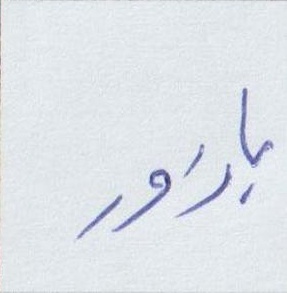 باروَر